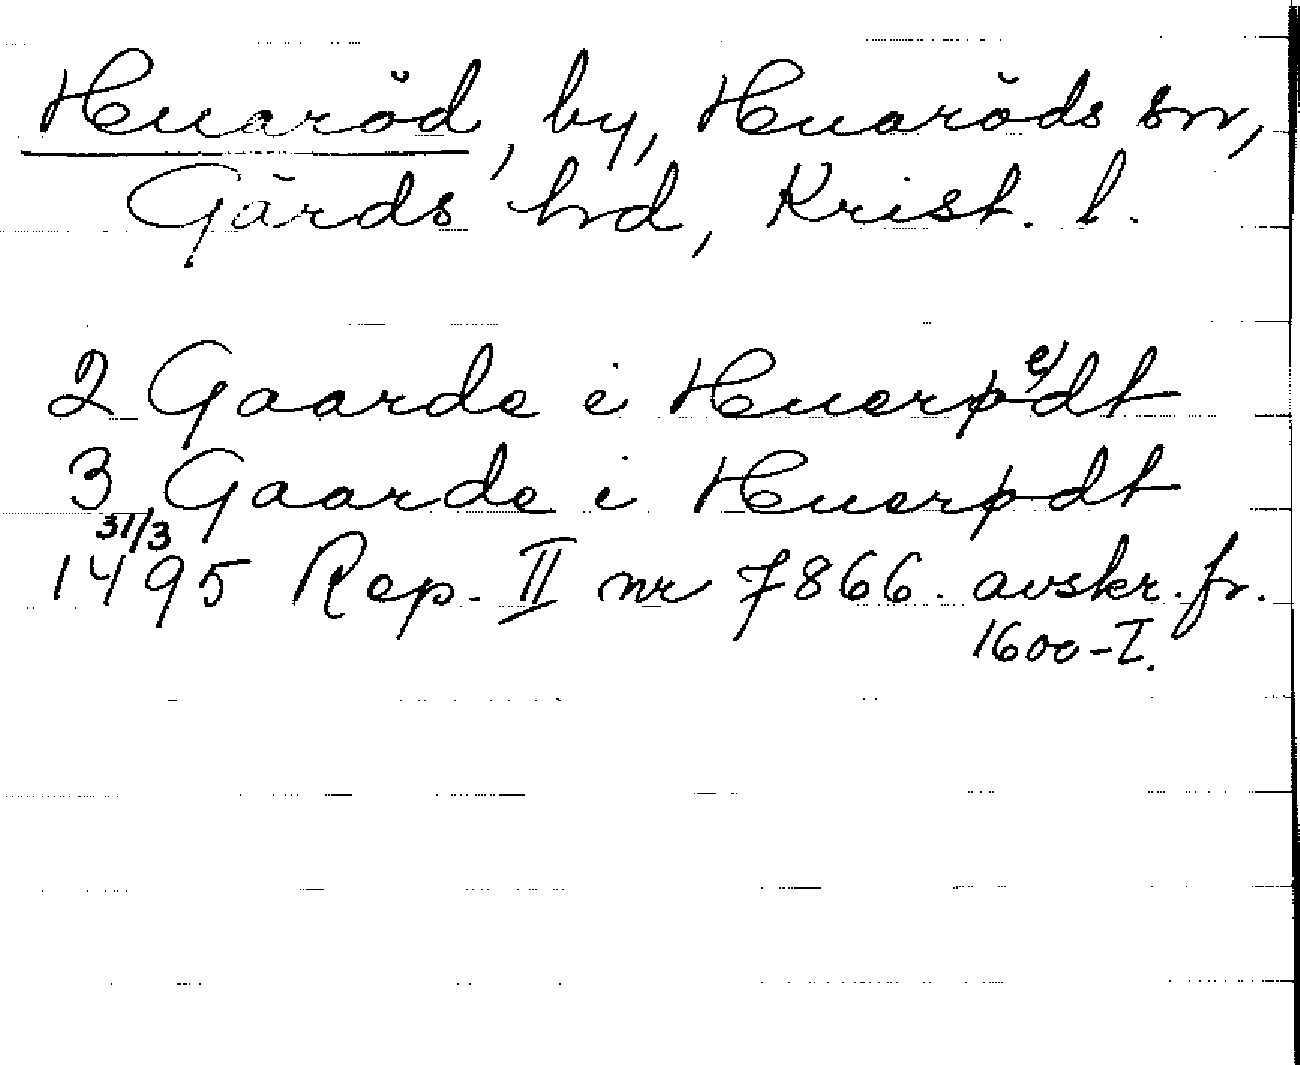 Huaröd, by, Huaröds sn,
Gärds hd, Krist. l.
2 Gaarde i Huerøedt
3 Gaarde i Huerødt
31/3
1495 Rep. II nr 7866. avskr. fr.
1600-T.